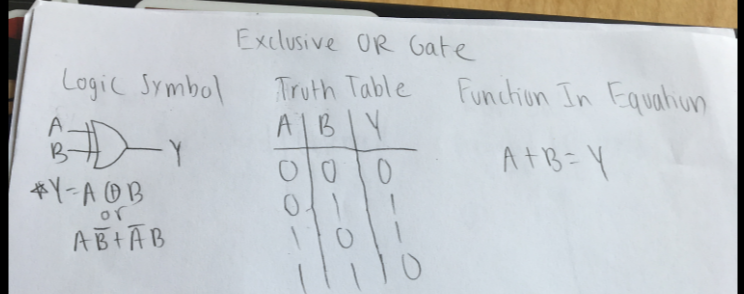 Exclusive OR Gate
Logic Symbol
A
B
Y
*Y=A⊕B
or
AB̅+A̅B
Truth Table
A B Y
0 0 0
0 1 1
1 0 1
1 1 0
Function In Equation
A+B=Y